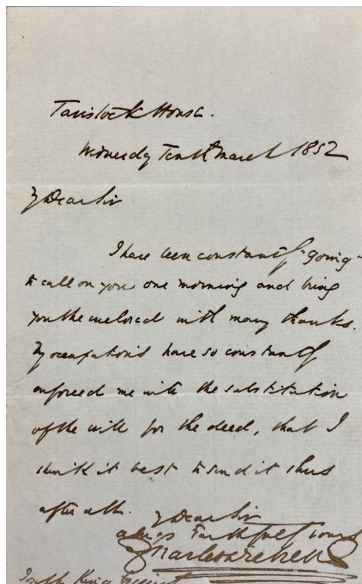 Tavistock House.
Wednesday Tenth March 1852
My Dear Sir
I have been constantly "going"
to call on you one morning and bring
you the enclosed with many thanks.
My occupations have so constantly
enforced me with the substitution
of the will for the deed, that I
think it best to send it thus
after all.
My Dear Sir
always Faithfully Yours
Charles Dickens